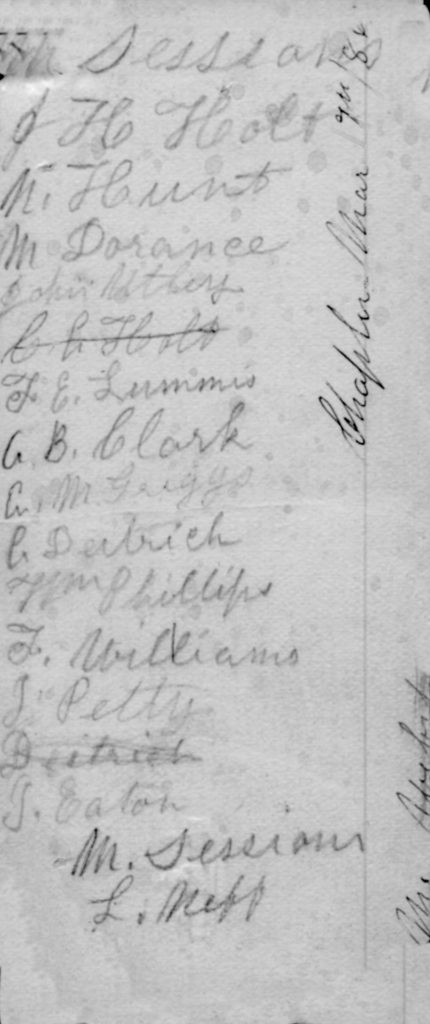 Sessions
J H Holt
N. Hunt
M Dorance
John Utley
C L Holt
F. E. Lummis
A B. Clark
A. M. Griggs
C Deitrich
Wm Phillips
F. Williams
J. Petty
Deitrich
J. Eaton
M. Sessions
L. Neff
Chaplin Mar